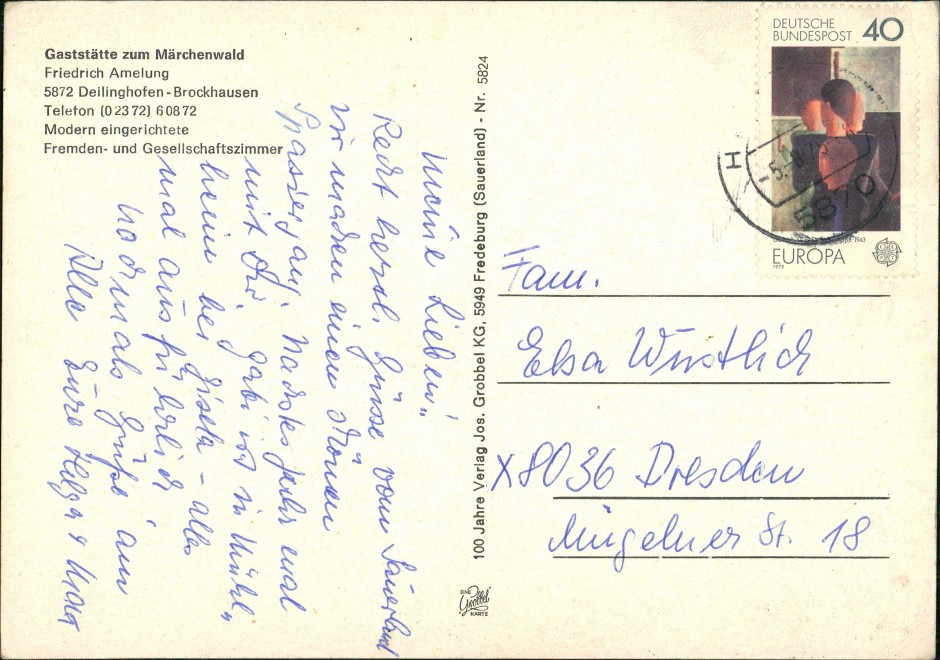 Gaststätte zum Märchenwald
Friedrich Amelung
5872 Deilinghofen - Brockhausen
Telefon (0 23 72) 6 08 72
Modern eingerichtete
Fremden- und Gesellschaftszimmer
Meine Lieben!
Recht herzl. Grüsse vom Sauerland
wir machen einen schönen
Spaziergang. Nächstes Jahr mal
mit Dir. Gabi ist in Mühl"
heim bei Gisela - alles
mal ausführlich
nochmals Grüße an
Alle Eure Helga &
100 Jahre Verlag Jos. Grobbel KG, 5949 Fredeburg (Sauerland) - Nr. 5824
EINE
Grobbel
KARTE
DEUTSCHE
BUNDESPOST 40
EUROPA
1975
H
5870
Fam.
Elsa Wüstlich
X8036 Dresden
Mügelner St. 18